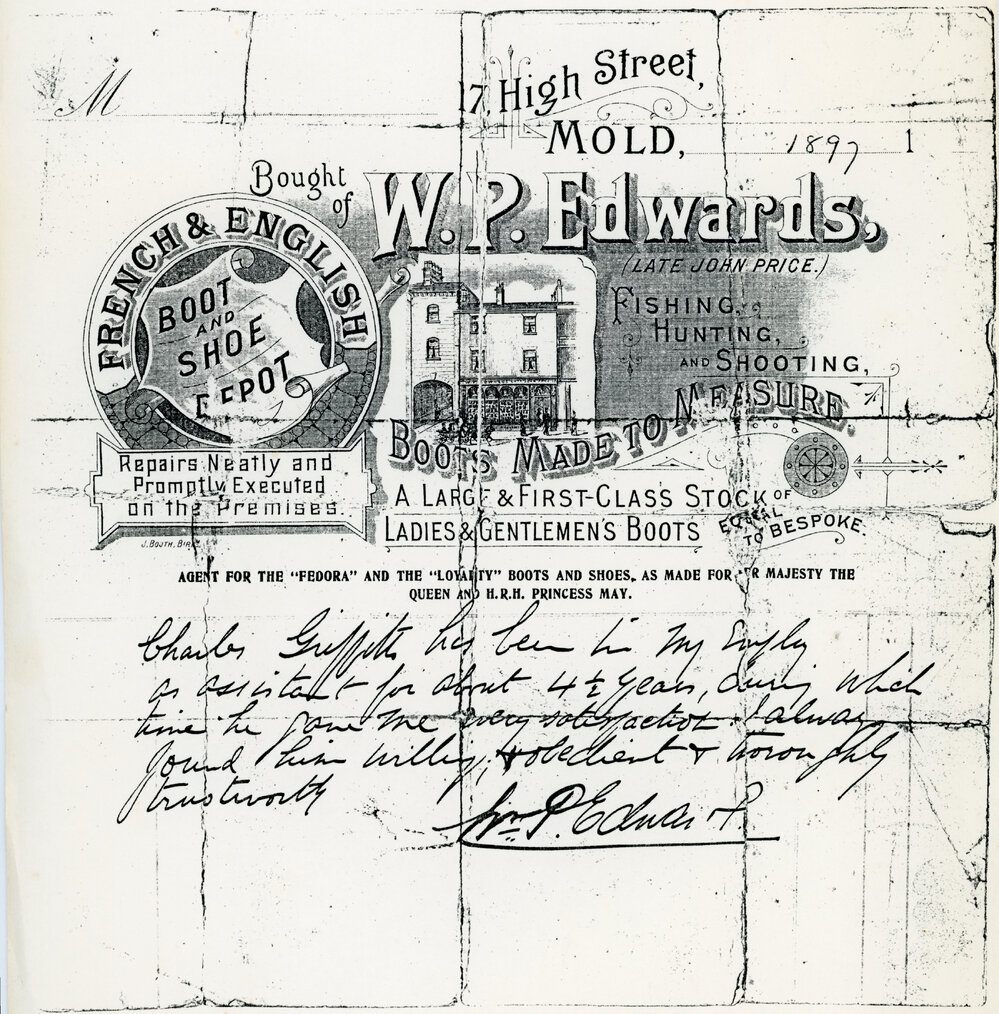 17, High Street,
MOLD,
M
1897 1
Bought
of
W. P. Edwards,
(LATE JOHN PRICE.)
FRENCH & ENGLISH
BOOT
AND
SHOE
DEPOT
FISHING,
HUNTING,
AND SHOOTING,
BOOTS MADE TO MEASURE.
Repairs Neatly and
Promptly Executed
on the Premises.
J. BOOTH,
A LARGE & FIRST-CLASS STOCK OF
LADIES & GENTLEMEN'S BOOTS
EQUAL
TO BESPOKE.
AGENT FOR THE "FEDORA" AND THE "LOYALTY" BOOTS AND SHOES, AS MADE FOR HER MAJESTY THE
QUEEN AND H.R.H. PRINCESS MAY.
Charles Griffiths has been in my Employ
as assistant for about 4½ years, during which
time he gave me every satisfaction. I always
found him willing, obedient & thoroughly
trustworthy
Wm. P. Edwards.